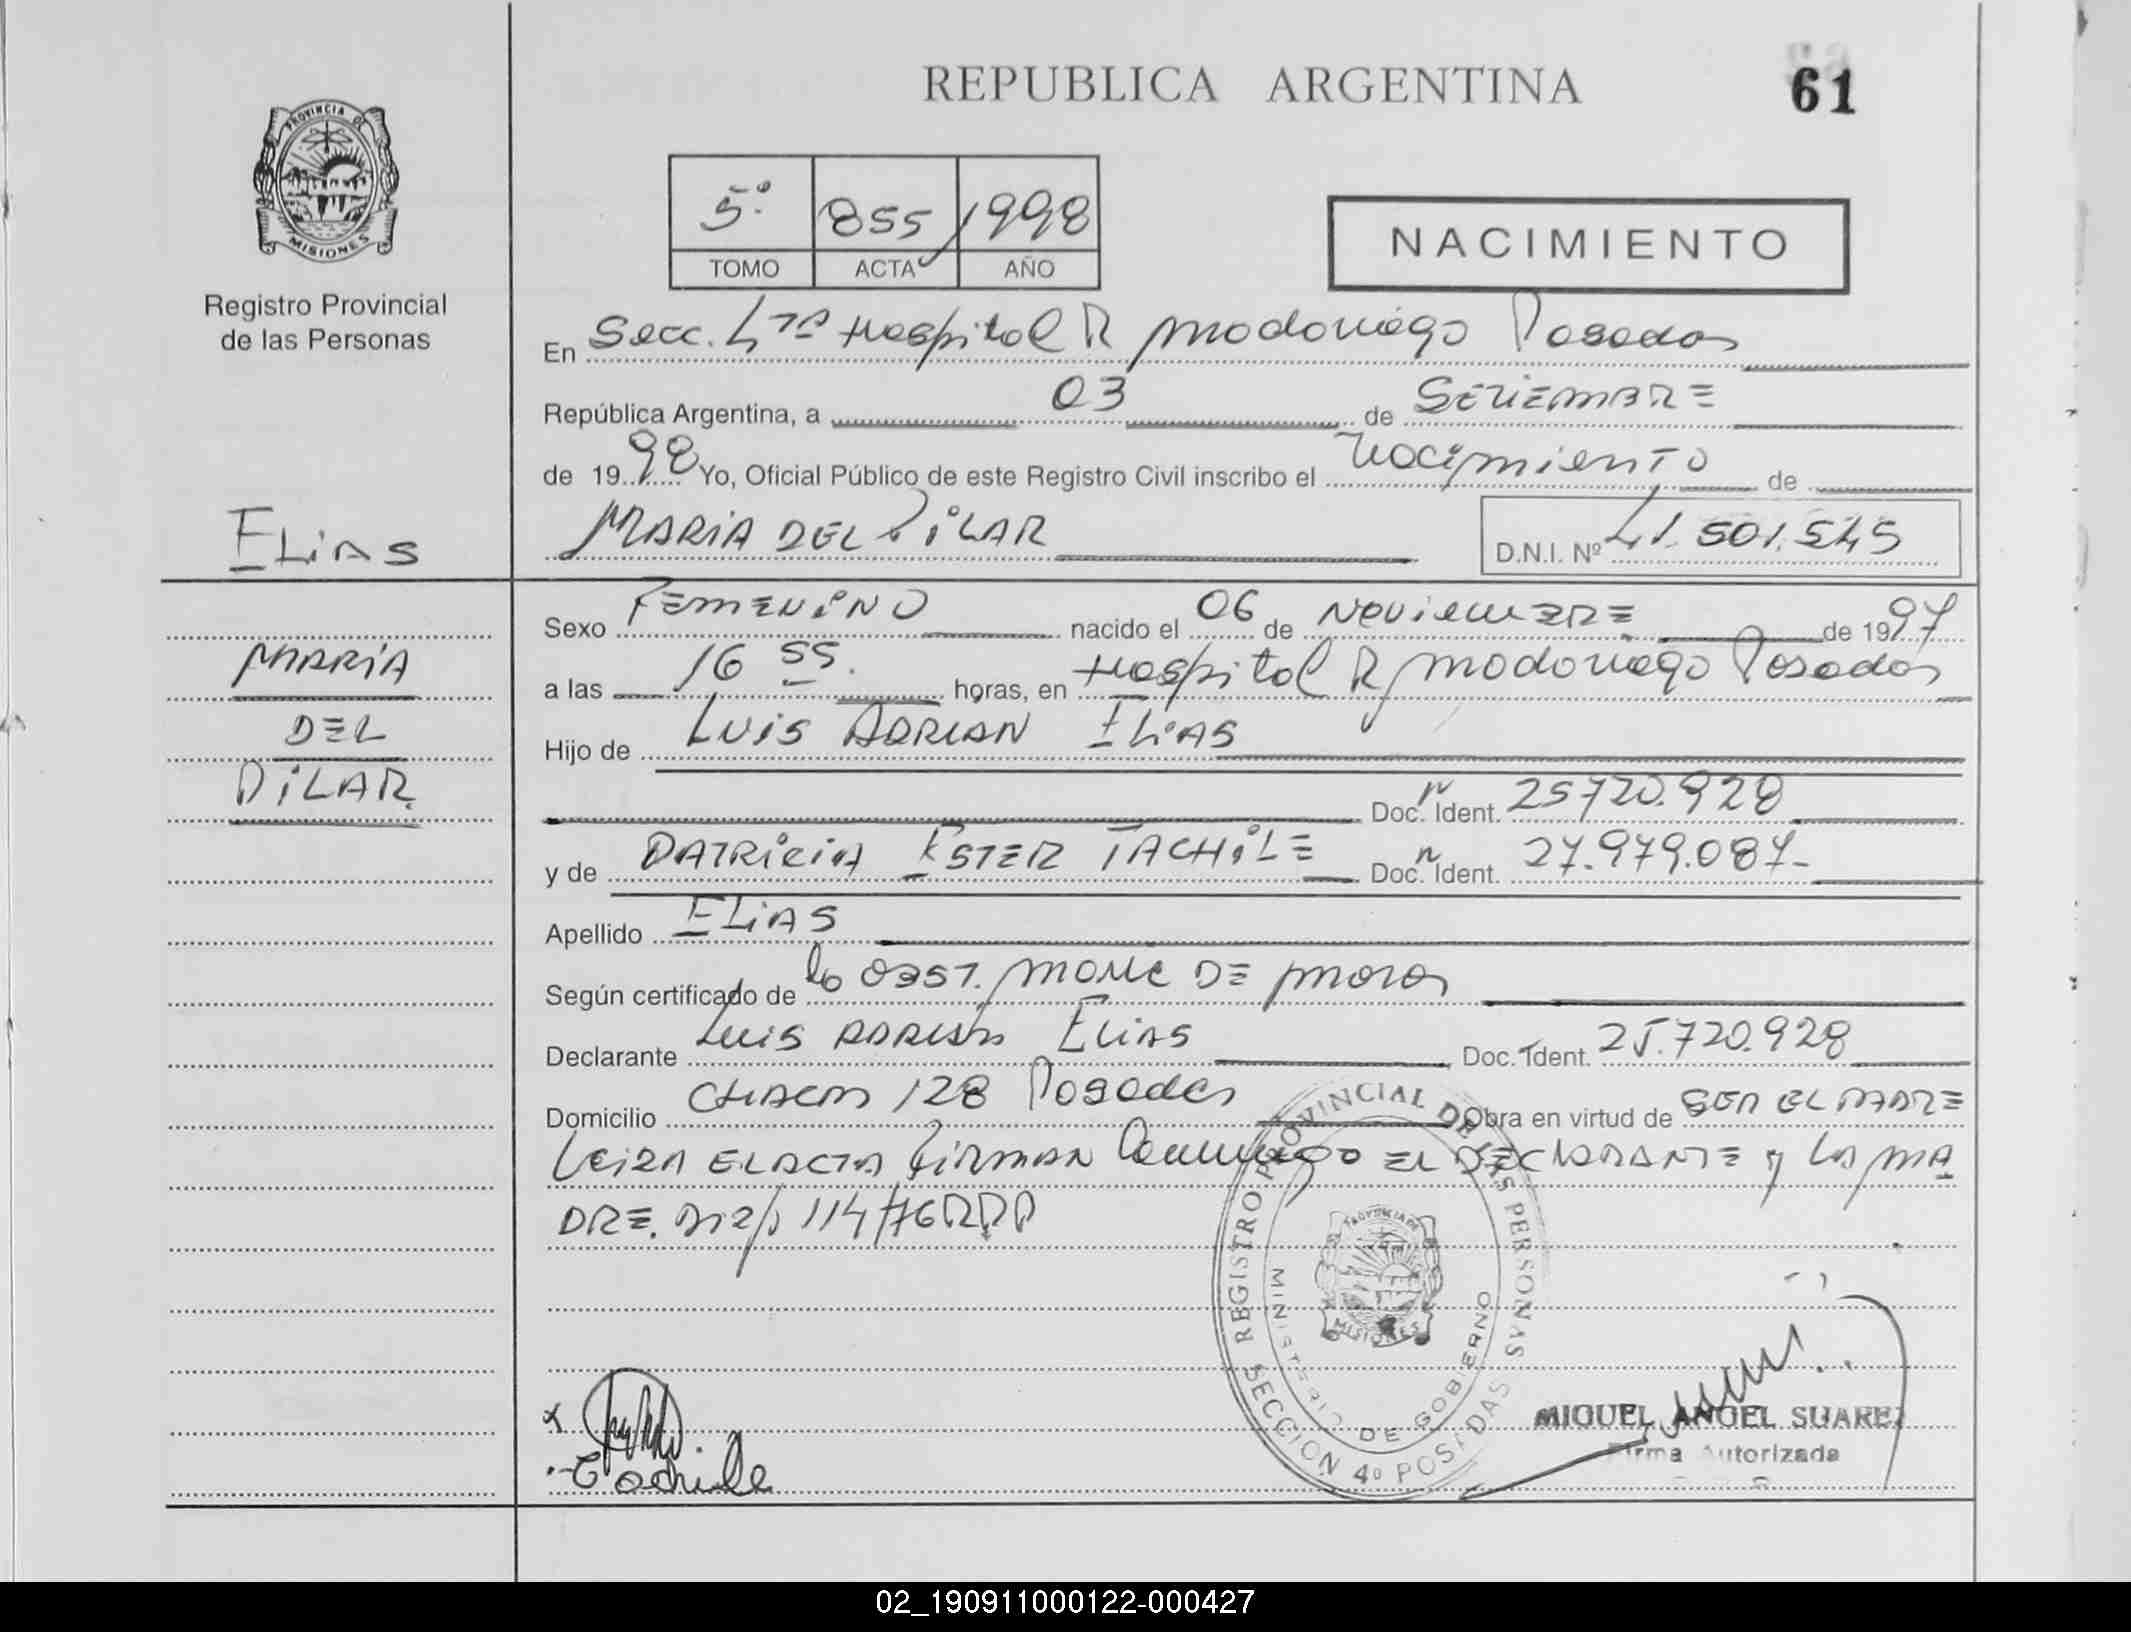 REPUBLICA ARGENTINA
61
PROVINCIA DE
MISIONES
Registro Provincial
de las Personas
5º 855 1998
TOMO ACTA AÑO
NACIMIENTO
En Secc. 4ta Hospital R Madariaga Posadas
República Argentina, a 03 de SETIEMBRE
de 1998 Yo, Oficial Público de este Registro Civil inscribo el Nacimiento de
MARIA DEL PILAR D.N.I. Nº 41.501.545
ELIAS
Sexo FEMENINO nacido el 06 de NOVIEMBRE de 1997
MARIA
DEL
PILAR
a las 16 55. horas, en Hospital R Madariaga Posadas
Hijo de LUIS ADRIAN ELIAS
Doc. Ident. 25720.928
y de PATRICIA ESTER TACHILE Doc. Ident. 27.979.087-
Apellido ELIAS
Según certificado de la OBST. DE
Declarante Luis ADRIAN ELIAS Doc. Ident. 25.720.928
Domicilio CHACO 128 Posadas Obra en virtud de SER EL PADRE
LEIDA EL ACTA FIRMAN Conmigo EL DECLARANTE y LA MA
DRE.
REGISTRO PROVINCIAL DE LAS PERSONAS
MINISTERIO DE GOBIERNO
MISIONES
SECCION 4º POSADAS
Tachile
MIGUEL ANGEL SUAREZ
Firma Autorizada
02_190911000122-000427